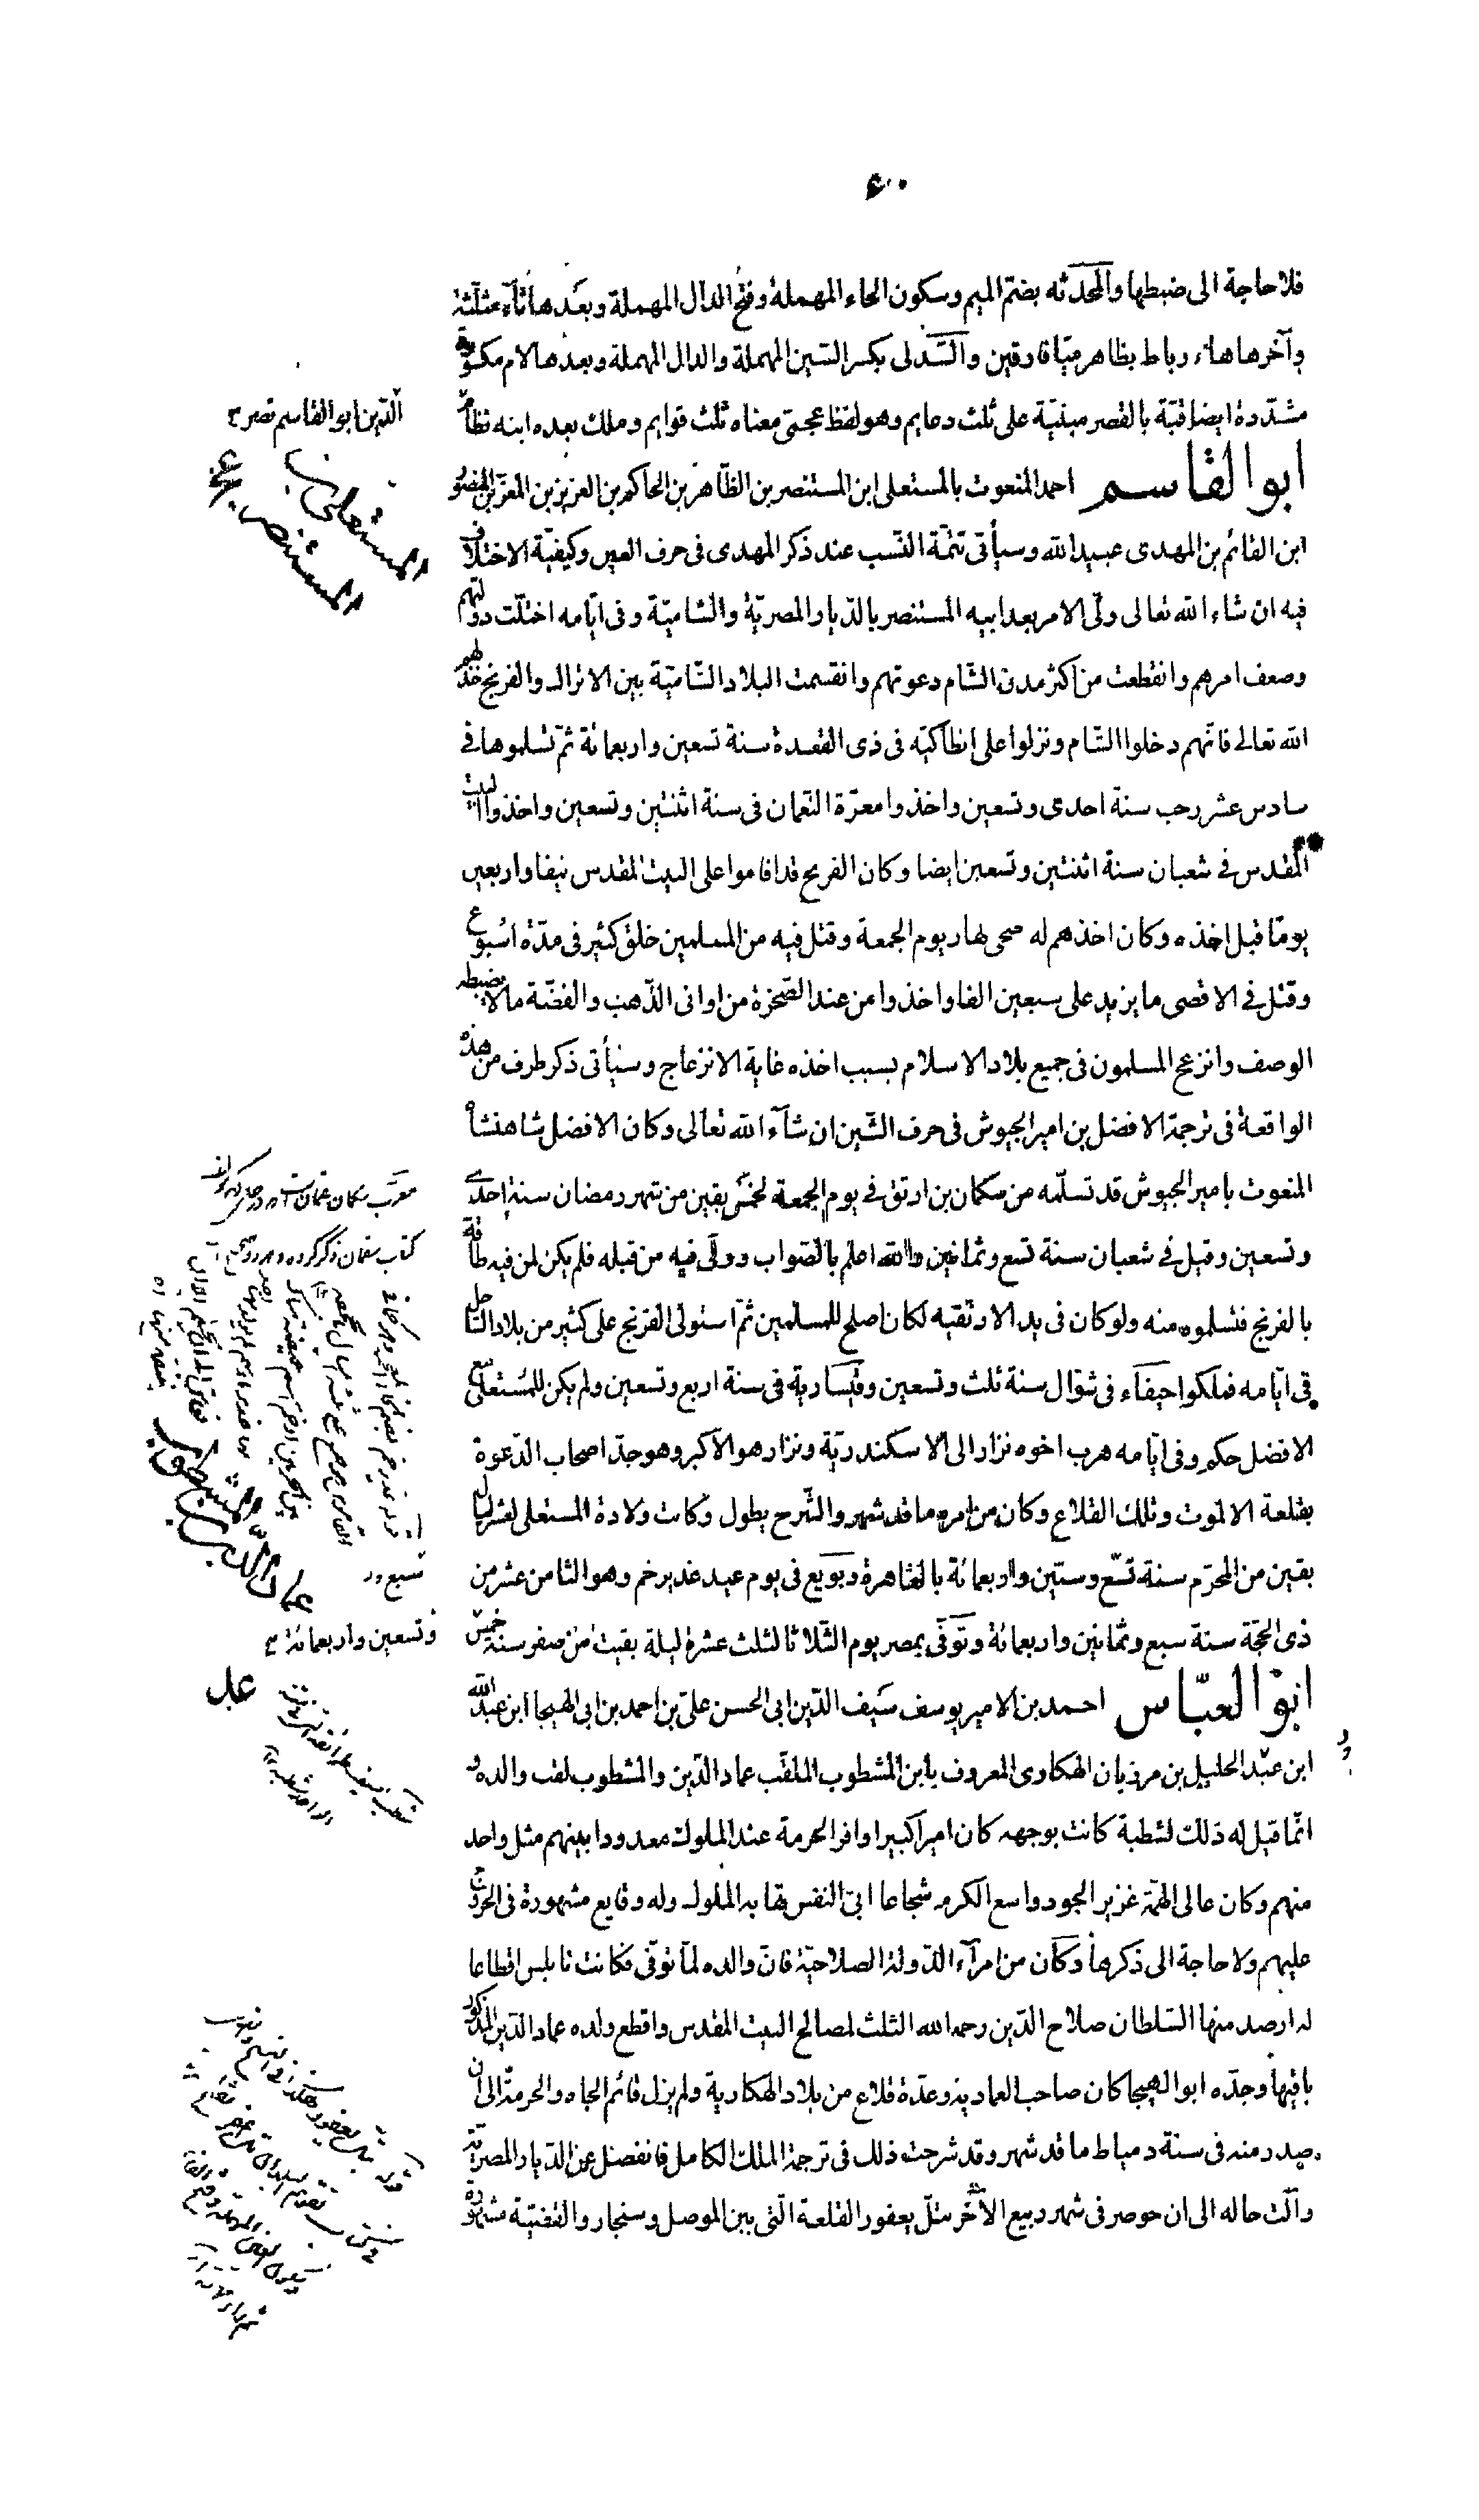 ۶۰
فلا حاجة الى ضبطها والمحدثه بضمّ الميم وسكون الحاء المهملة وفتح الدال المهملة وبعدها ثآء مثلّثة
وآخرها هاء رباط بظاهر ميّافارقين والسّدلى بكسر السّين المهملة والدال المهملة وبعدها لام مكسورة
مشدّدة ايضا قبّة بالقصر مبنيّة على ثلث دعايم وهو لفظ عجمىّ معناه ثلث قوايم وملك بعده ابنه نظام
الدّين ابو القاسم نصر
ابو القاسم احمد المنعوت بالمستعلى ابن المستنصر بن الظّاهر بن الحاكم بن العزيز بن المعزّ بن المنصور
المستعلى بن
المستنصر
ابن القائم بن المهدى عبيد الله وسيأتى تتمّة النّسب عند ذكر المهدى فى حرف العين وكيفيّة الاختلاف
فيه ان شاء الله تعالى ولّى الامر بعد ابيه المستنصر بالدّيار المصريّة والشاميّة وفى ايّامه اختلّت دولتهم
وضعف امرهم وانقطعت من اكثر مدن الشّام دعوتهم وانقسمت البلاد الشّاميّة بين الاتراك والفرنج خذلهم
الله تعالى فانّهم دخلوا الشّام ونزلوا على انطاكيّه فى ذى القعدة سنة تسعين واربعمائة ثمّ تسلموها فى
سادس عشر رجب سنة احدى وتسعين واخذوا معرّة النّعمان فى سنة اثنتين وتسعين واخذوا البيت
المقدس فى شعبان سنة اثنتين وتسعين ايضا وكان الفرنج قد اقاموا على البيت المقدس نيفا واربعين
يومًا قبل اخذه وكان اخذهم له ضحى نهار يوم الجمعة وقتل فيه من المسلمين خلق كثير فى مدّة اسبوع
وقتل فى الاقصى ما يزيد على سبعين الفا واخذوا من عند الصّخرة من اوانى الذّهب والفضّة ما لا يضبطه
الوصف وانزعج المسلمون فى جميع بلاد الاسلام بسبب اخذه غاية الانزعاج وسيأتى ذكر طرف من هذه
الواقعة فى ترجمة الافضل بن امير الجيوش فى حرف الشّين ان شآء الله تعالى وكان الافضل شاهنشاه
المنعوت بامير الجيوش قد تسلّمه من سكمان بن ارتق فى يوم الجمعة لخمس بقين من شهر رمضان سنة احدى
وتسعين وقيل فى شعبان سنة تسع وثمانين والله اعلم بالصّواب وولّى فيه من قبله فلم يكن لمن فيه طاقة
بالفرنج فتسلموه منه ولو كان فى يد الارتقيه لكان اصلح للمسلمين ثمّ استولى الفرنج على كثير من بلاد السّاحل
فى ايّامه فملكوا حيفاء فى شوّال سنة ثلث وتسعين وقيساريّة فى سنة اربع وتسعين ولم يكن للمستعلى مع
الافضل حكم وفى ايّامه هرب اخوه نزار الى الاسكندريّة ونزار هو الاكبر وهو جدّ اصحاب الدّعوة
بقلعة الالموت وتلك القلاع وكان من امره ما قد شهر والشّرح يطول وكانت ولادة المستعلى لعشر ليال
بقين من المحرّم سنة تسع وستين واربعمائة بالقاهرة وبويع فى يوم عيد غدير خم وهو الثامن عشر من
ذى الحجّة سنة سبع وثمانين واربعمائة وتوفّى بمصر يوم الثّلاثا لثلث عشرة ليلة بقيت من صفر سنة خمس
وتسعين واربعمائة
عماد الدّين بن المشطوب
ابو العبّاس احمد بن الامير يوسف سيف الدّين ابى الحسن علىّ بن احمد بن ابى الهيجا ابن عبد الله
ابن عبد الخليل بن مرزبان الهكارى المعروف بابن المشطوب الملقّب عماد الدّين والمشطوب لقب والده
انّما قيل له ذلك لشطبة كانت بوجهه كان اميرا كبيرا وافر الحرمة عند الملوك معدودا بينهم مثل واحد
منهم وكان عالى الهمّة غزير الجود واسع الكرم شجاعا ابىّ النفس تهابه الملوك وله وقايع مشهورة فى الخروج
عليهم ولا حاجة الى ذكرها وكان من امرآء الدّولة الصلاحيّة فانّ والده لمّا توفّى فكانت نابلس اقطاعا
له ارصد منها السّلطان صلاح الدّين رحمه الله الثلث لمصالح البيت المقدس واقطع ولده عماد الدّين المذكور
باقيها وجدّه ابو الهيجا كان صاحب العماديه وعدّة قلاع من بلاد الهكارية ولم يزل قائم الجاه والحرمة الى ان
صدر منه فى سنة دمياط ما قد شهر وقد شرحت ذلك فى ترجمة الملك الكامل فانفصل عن الدّيار المصريّة
وآلت حاله الى ان حوصر فى شهر ربيع الآخر بتلّ يعفور القلعة الّتى بين الموصل وسنجار والقضيّة مشهورة